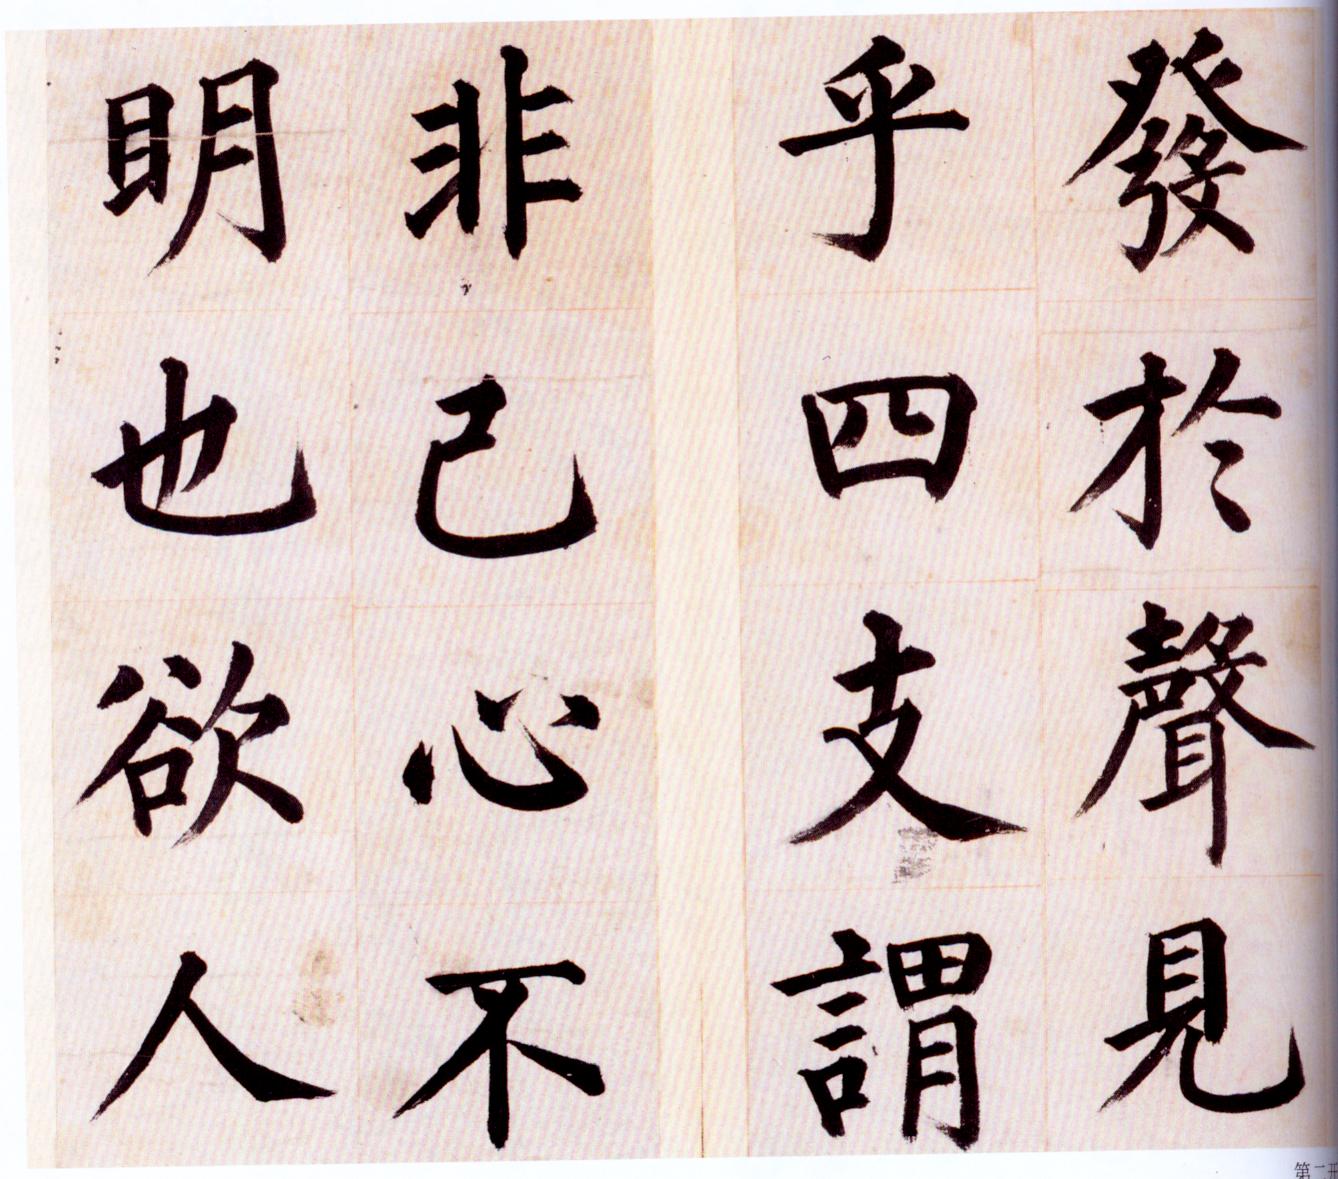 發於聲見
乎四支謂
非己心不
明也欲人
第二册